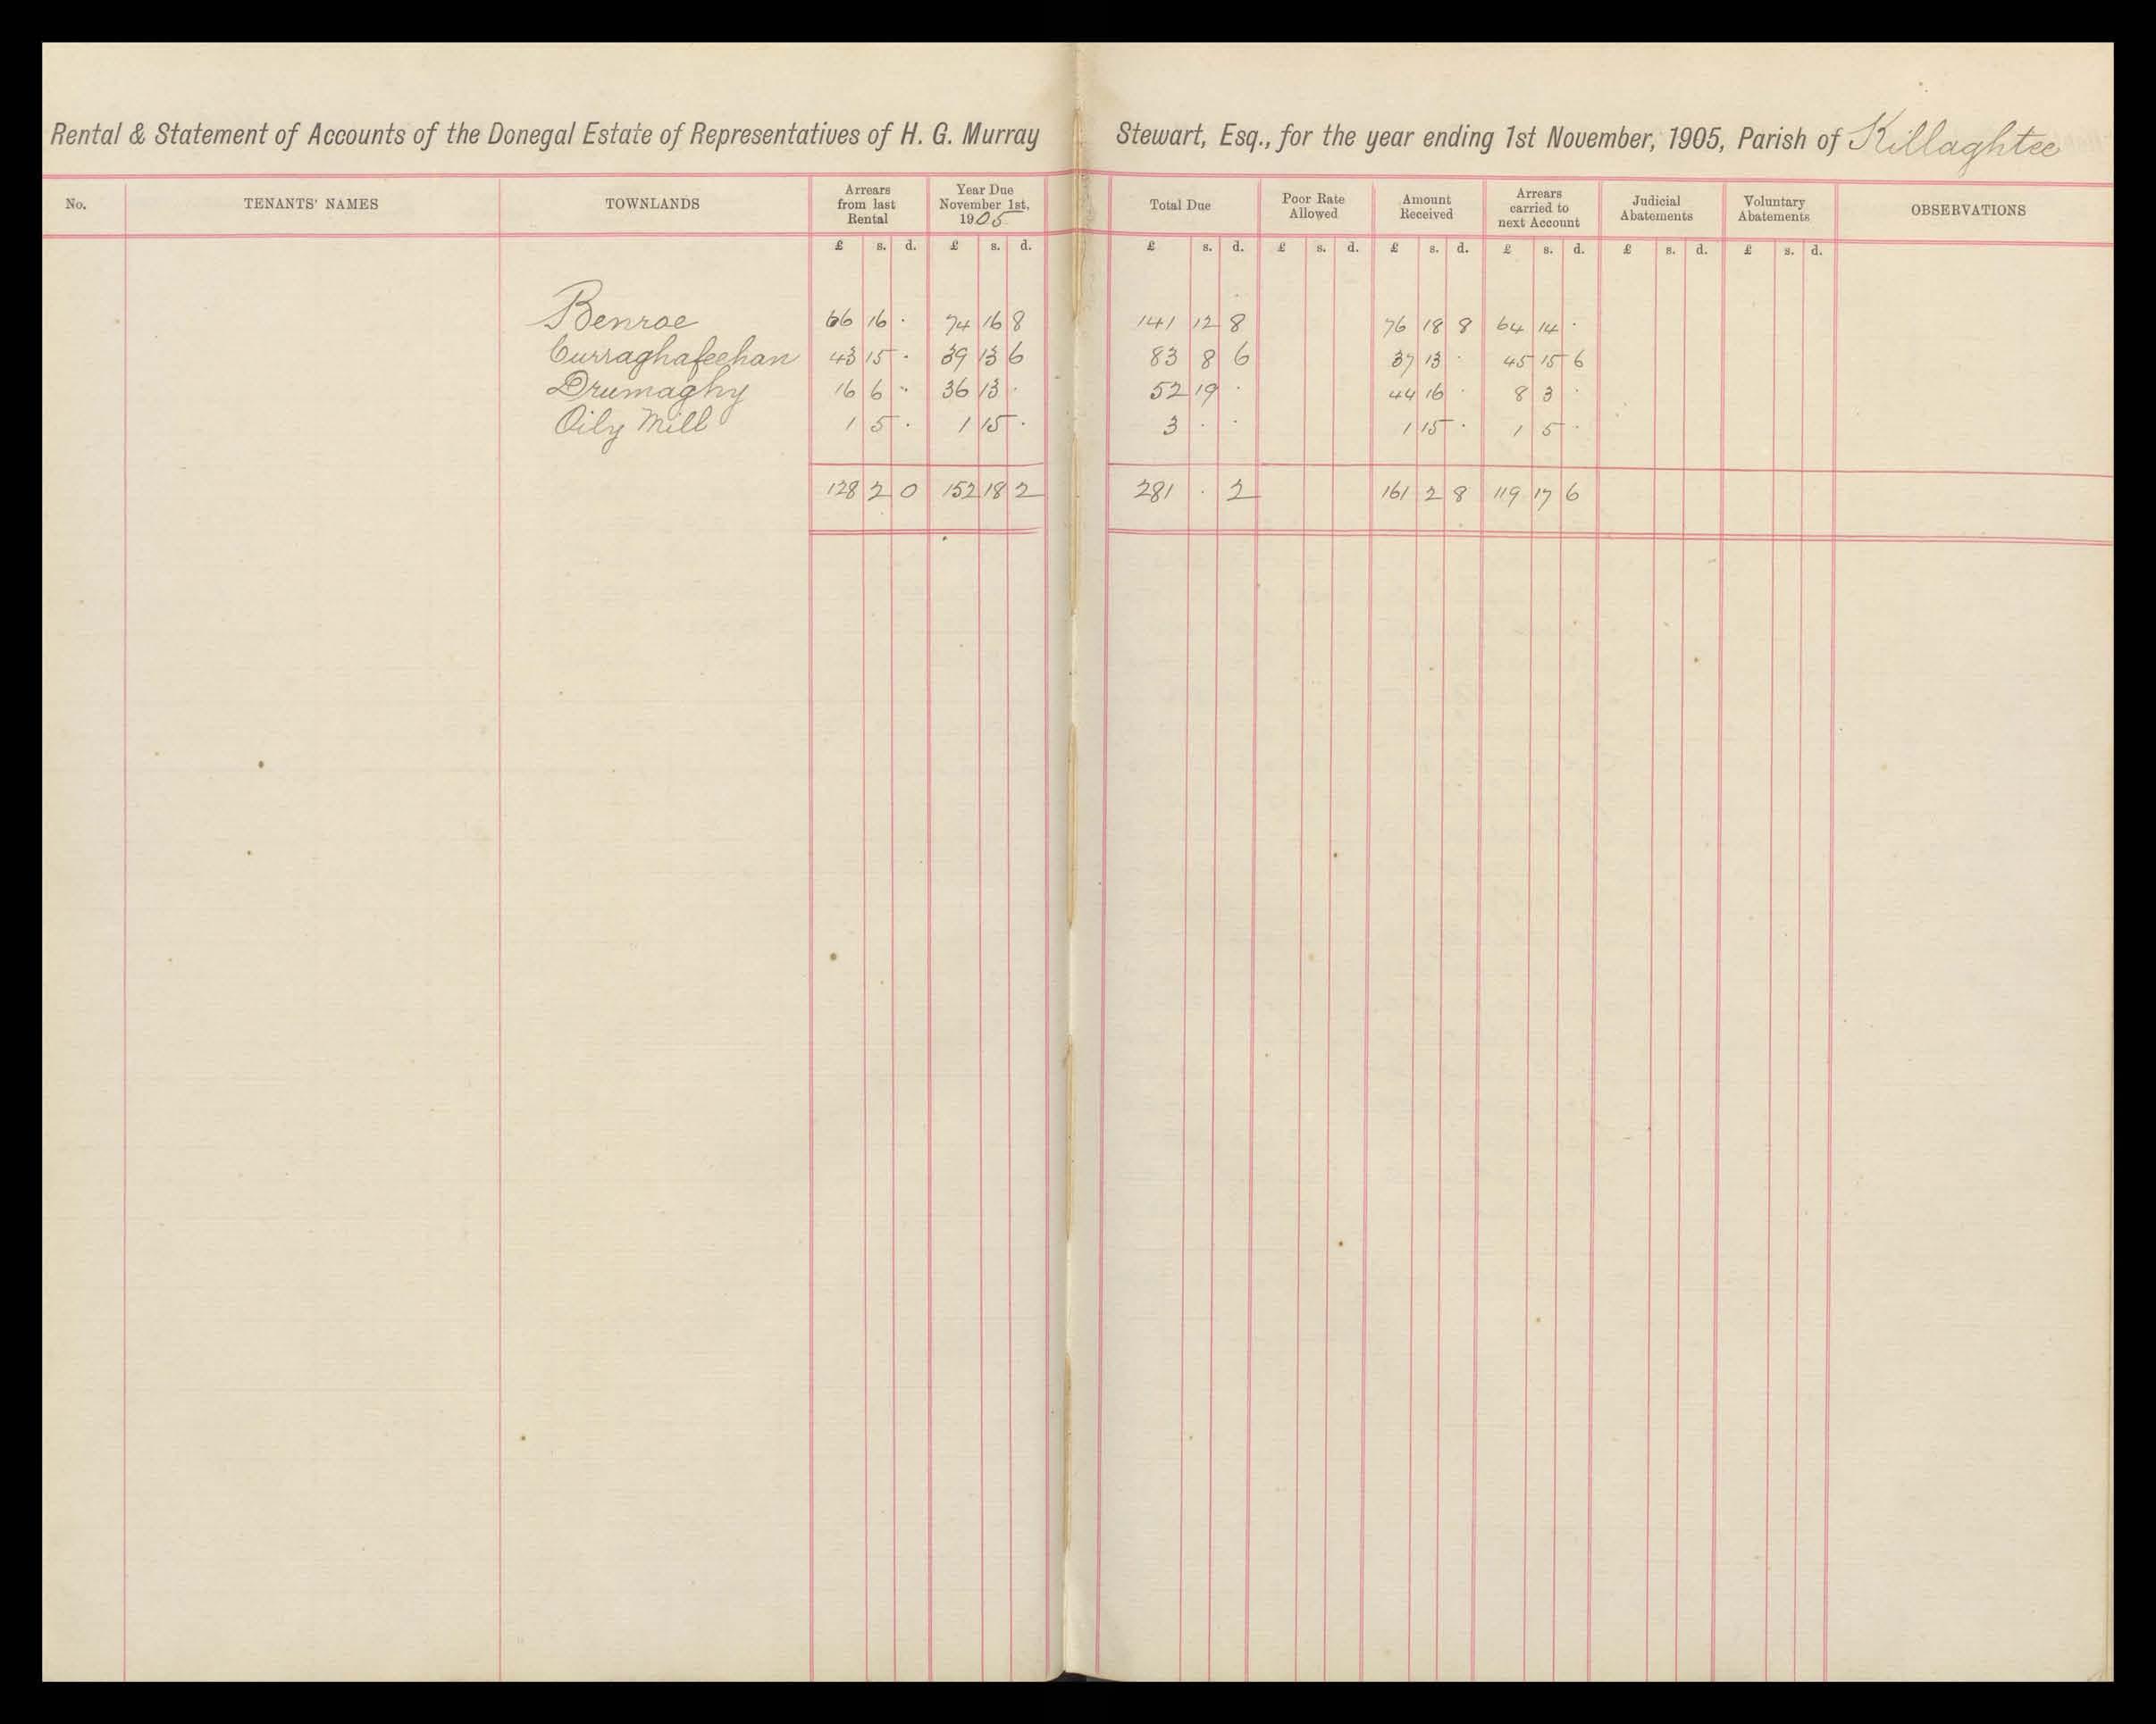 Rental & Statement of Accounts of the Donegal Estate of Representatives of H. G. Murray Stewart, Esq., for the year ending 1st November, 1905, Parish of Killaghtee
No. TENANTS' NAMES TOWNLANDS Arrears from last Rental Year Due November 1st, 1905 Total Due Poor Rate Allowed Amount Received Arrears carried to next Account Judicial Abatements Voluntary Abatements OBSERVATIONS
£ s. d. £ s. d. £ s. d. £ s. d. £ s. d. £ s. d. £ s. d. £ s. d.
Benroe 66 16 · 74 16 8 141 12 8 76 18 8 64 14 ·
Curraghafeehan 43 15 · 39 13 6 83 8 6 37 13 · 45 15 6
Drumaghy 16 6 · 36 13 · 52 19 · 44 16 · 8 3 ·
Oily Mill 1 5 · 1 15 · 3 · · 1 15 · 1 5 ·
128 2 0 152 18 2 281 · 2 161 2 8 119 17 6